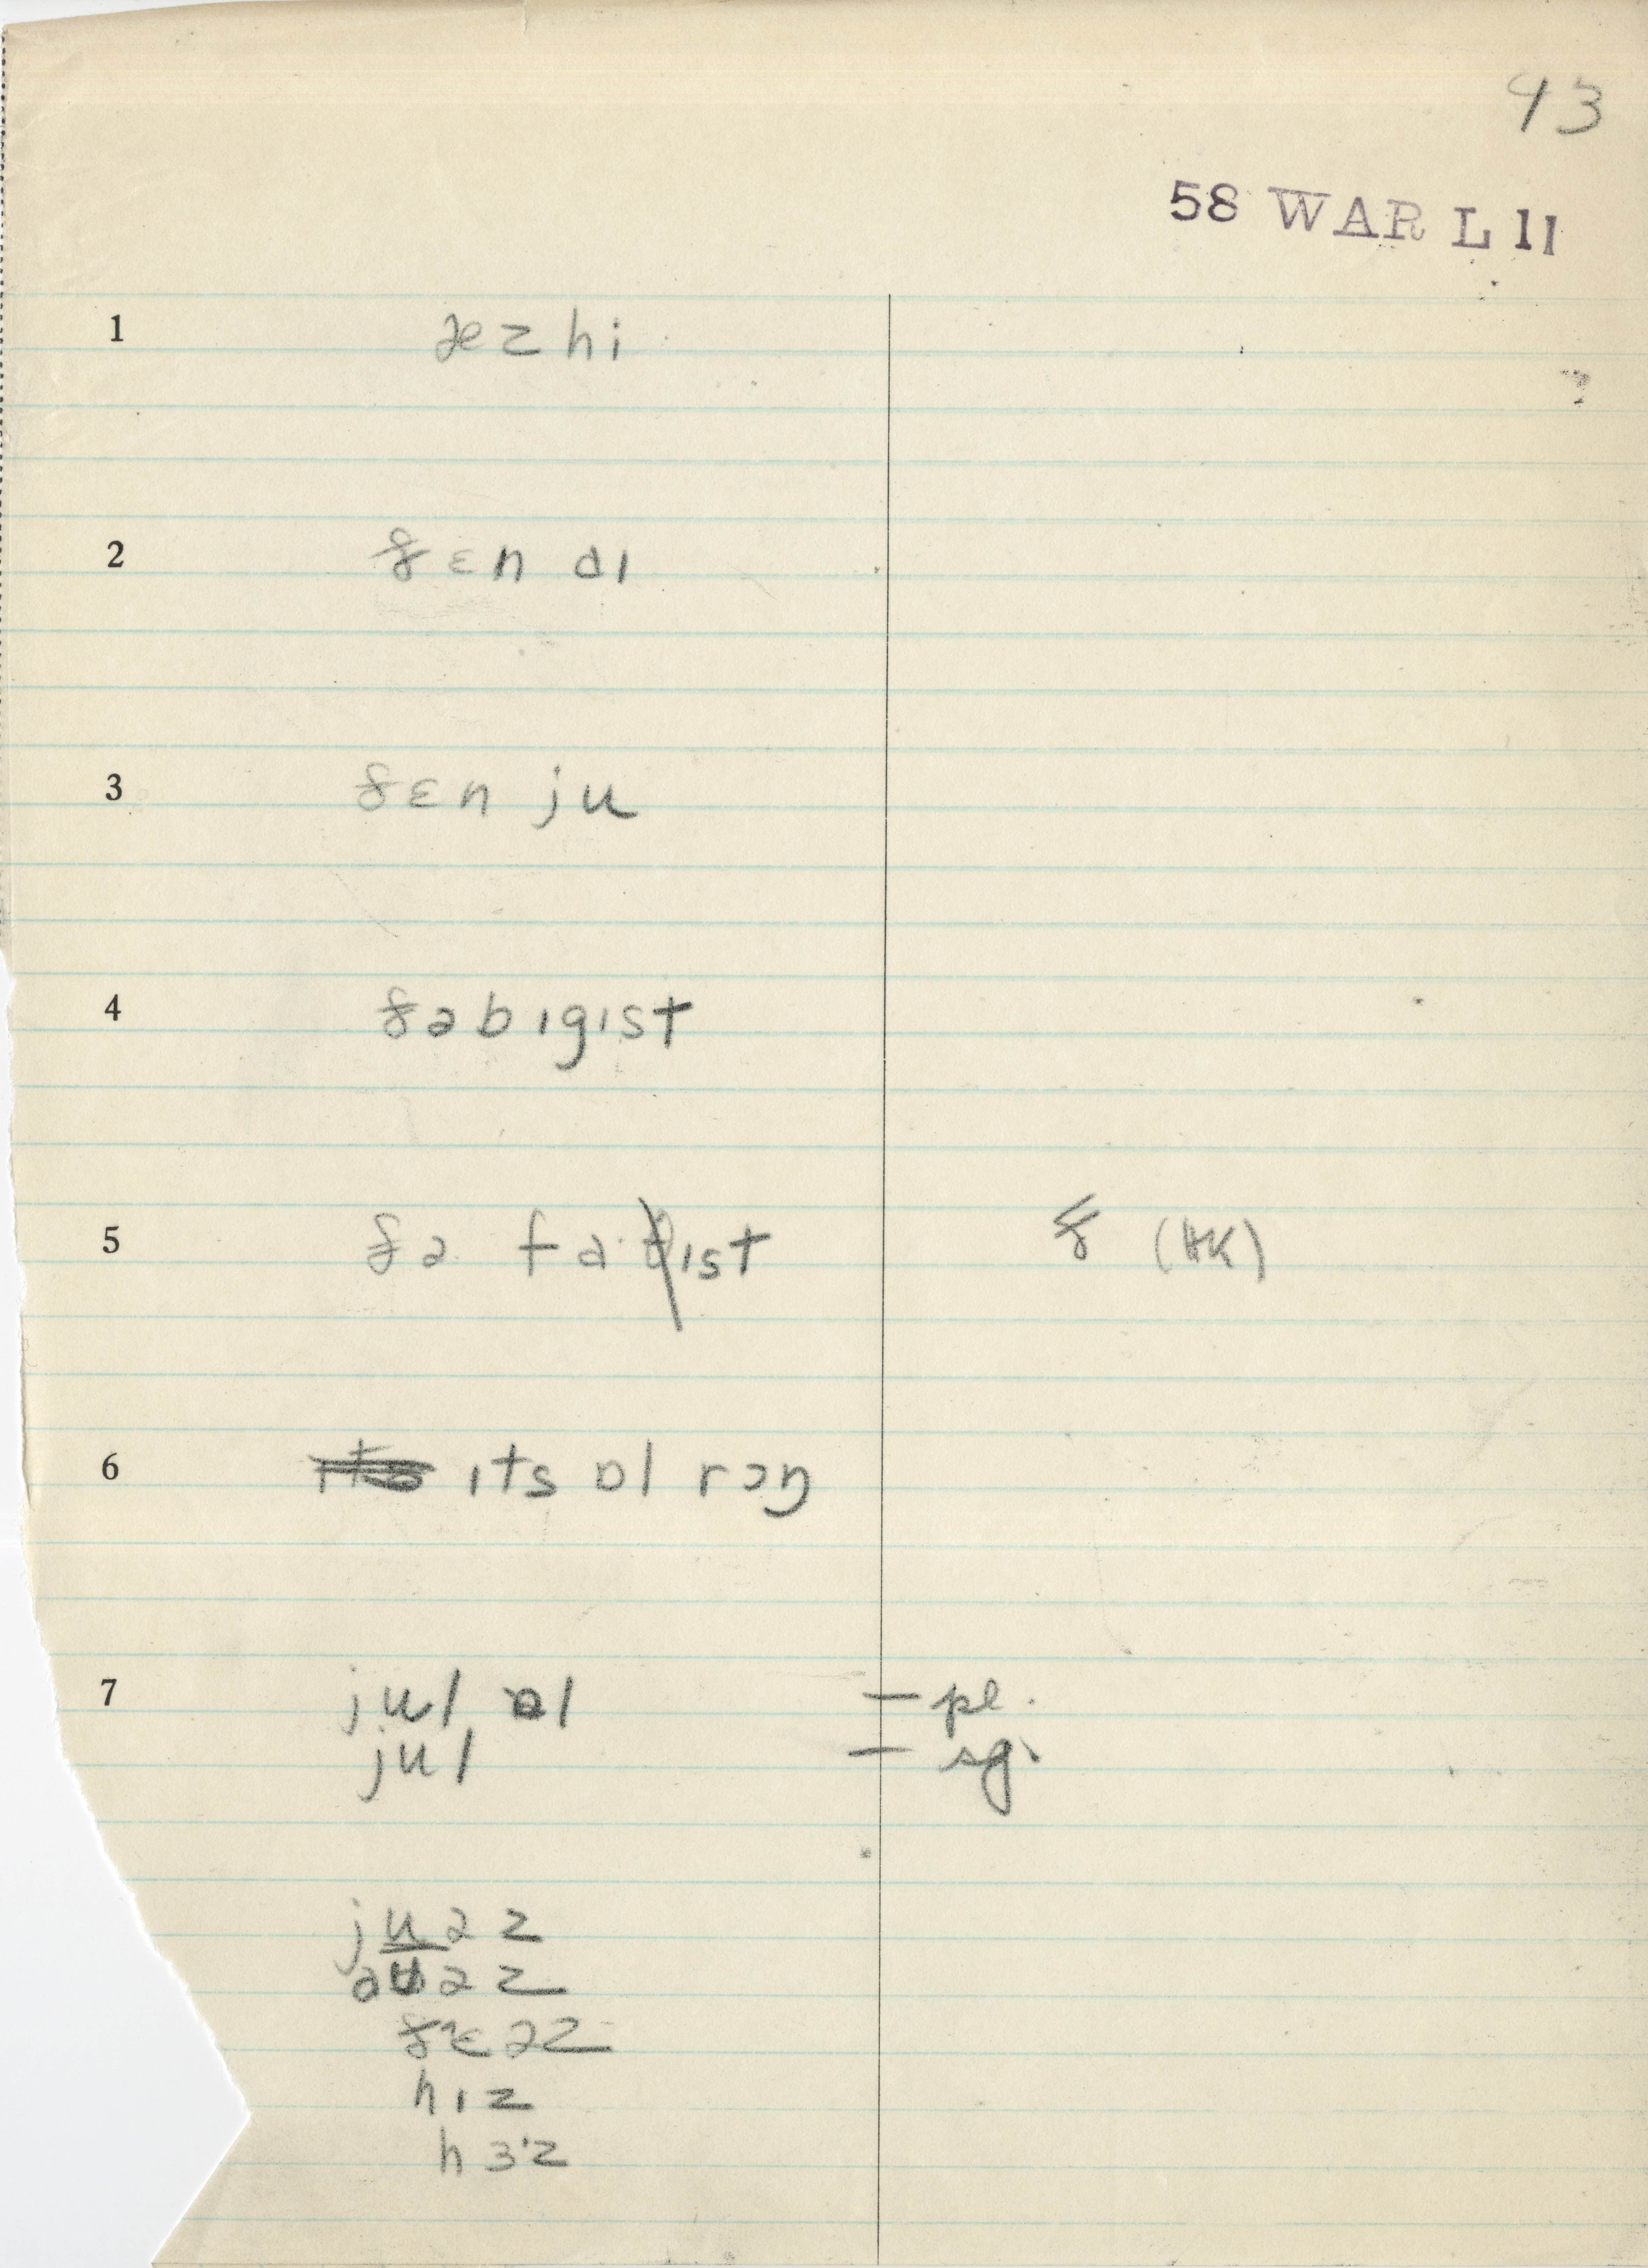 43
58 WAR L 11
1 æz hi
2 ðɛn aɪ
3 ðɛn ju
4 ðə bɪgɪst
5 ðə fa·ðɪst ð (HK)
6 ɪts ɒl rɔŋ
7 jul ɒl — pl.
jul — sg.
juəz
aʊəz
ðɛəz
hɪz
hɜ·z